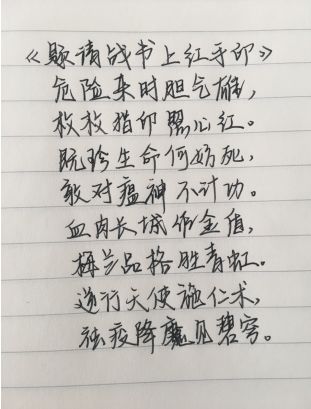 《题请战书上红手印》
危险来时胆气雄，
枚枚指印照心红。
既珍生命何妨死，
敢对瘟神不计功。
血肉长城作金盾，
梅兰品格胜青虹。
逆行天使施仁术，
祛疫降魔见碧穹。